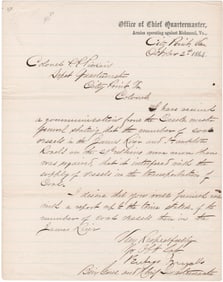 Office of Chief Quartermaster,
Armies operating against Richmond, Va.,
City Point, Va
1864.
Colonel
Depot Quartermaster
City Point Va
Colonel
I have received
a communication from the Quarter master
General stating that the number of
vessels in the James River and Hampton
Roads on the were more than
was required, and to interfere with the
supply of vessels in the transportation of
Coal.
I desire that you would furnish me
with a report up to the time stated, of the
number of vessels then in the
James River
Very Respectfully
Your Obt Svt
Rufus Ingalls
Brig Genl and Chief Quartermaster